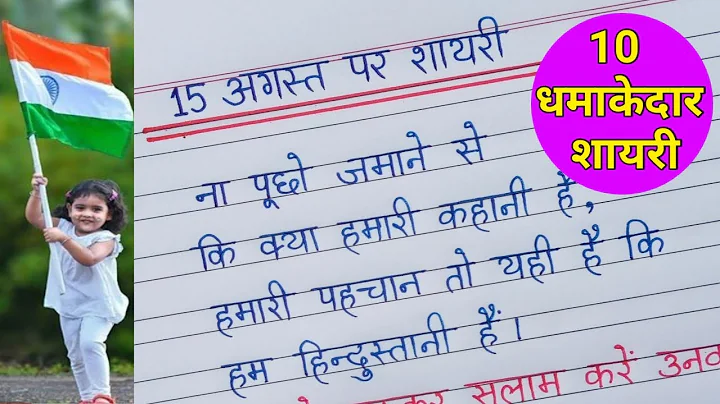 15 अगस्त पर शायरी
10
धमाकेदार
शायरी
ना पूछो जमाने से
कि क्या हमारी कहानी है,
हमारी पहचान तो यही है कि
हम हिन्दुस्तानी हैं।
सलाम करें